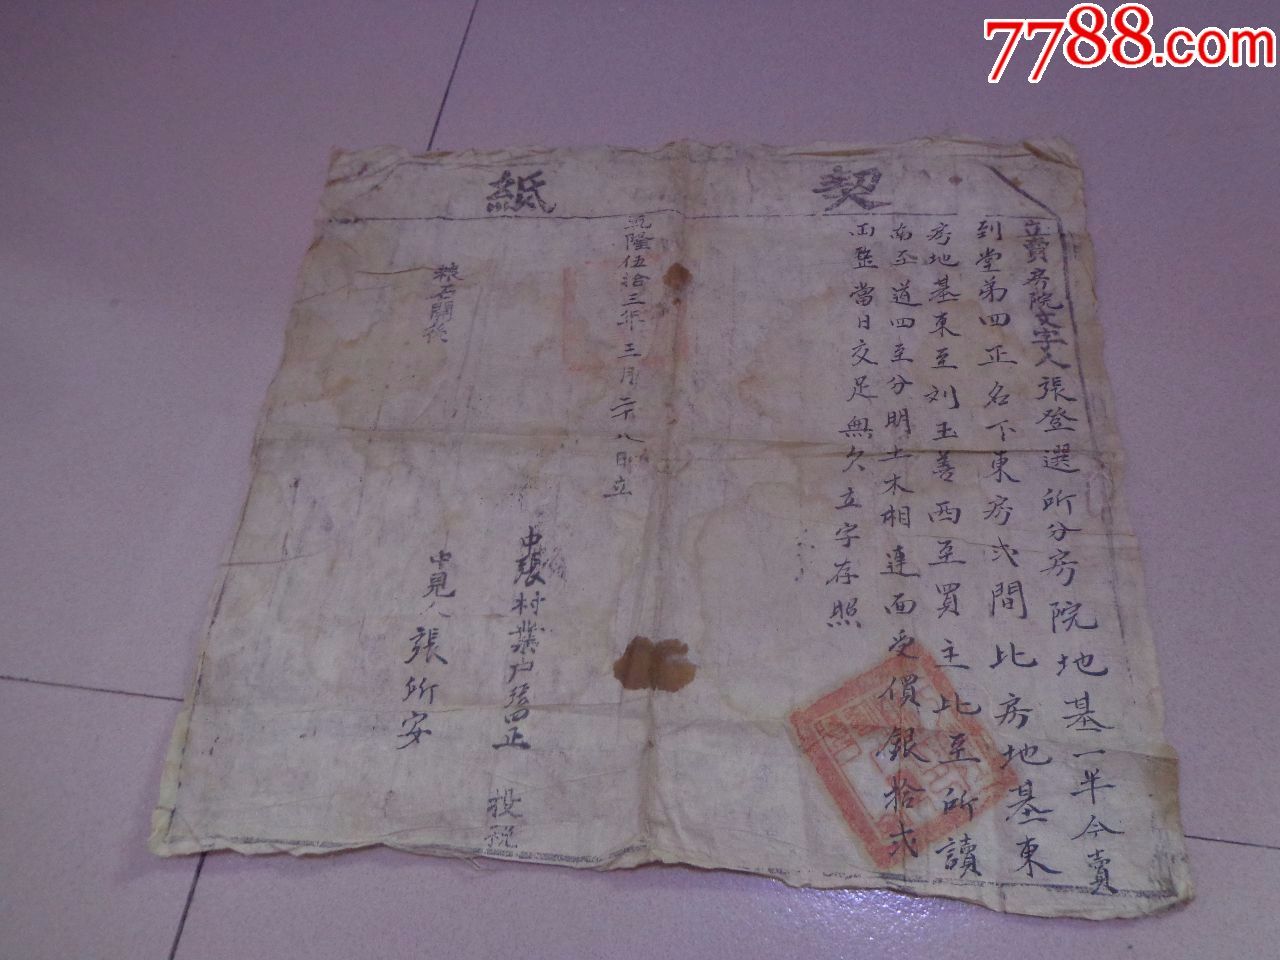 7788.com
契紙
立賣房院文字人張登選所分房院地基一半今賣
到堂弟四正名下東房弍間比房地基東
房地基東至刘玉善西至買主比至所讀
南至道四至分明土木相連面受價銀拾弍
両整當日交足無欠立字存照
乾隆伍拾三年三月二十八日立
中張村業户張四正 投税
中見人張所安
糧石開後